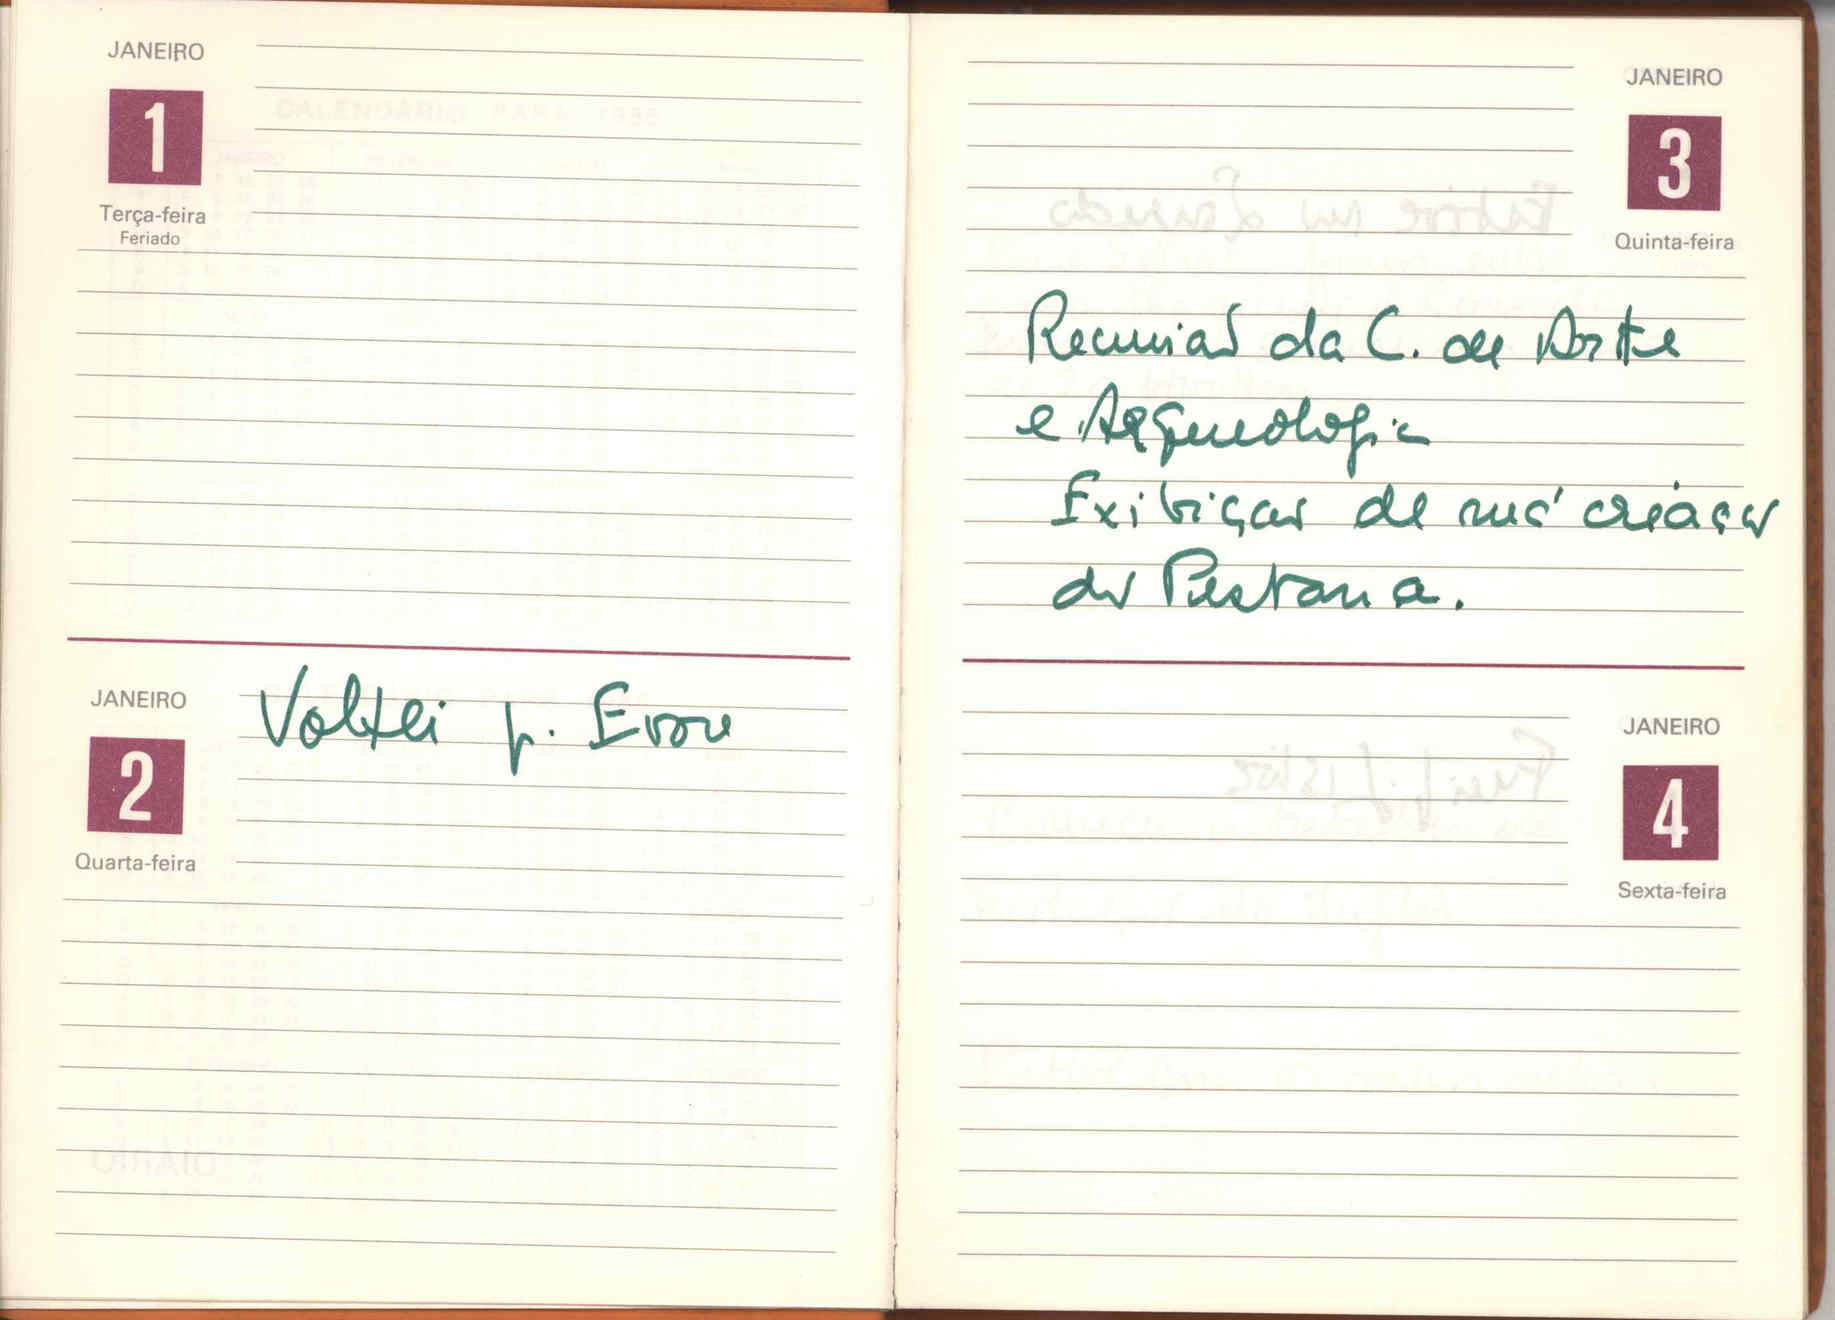 JANEIRO
1
Terça-feira
Feriado
JANEIRO
2
Quarta-feira
Voltei p. Evora
JANEIRO
3
Quinta-feira
Reunião da C. de Arte
e Arqueologia
Exibição de má criação
do Pestana.
JANEIRO
4
Sexta-feira